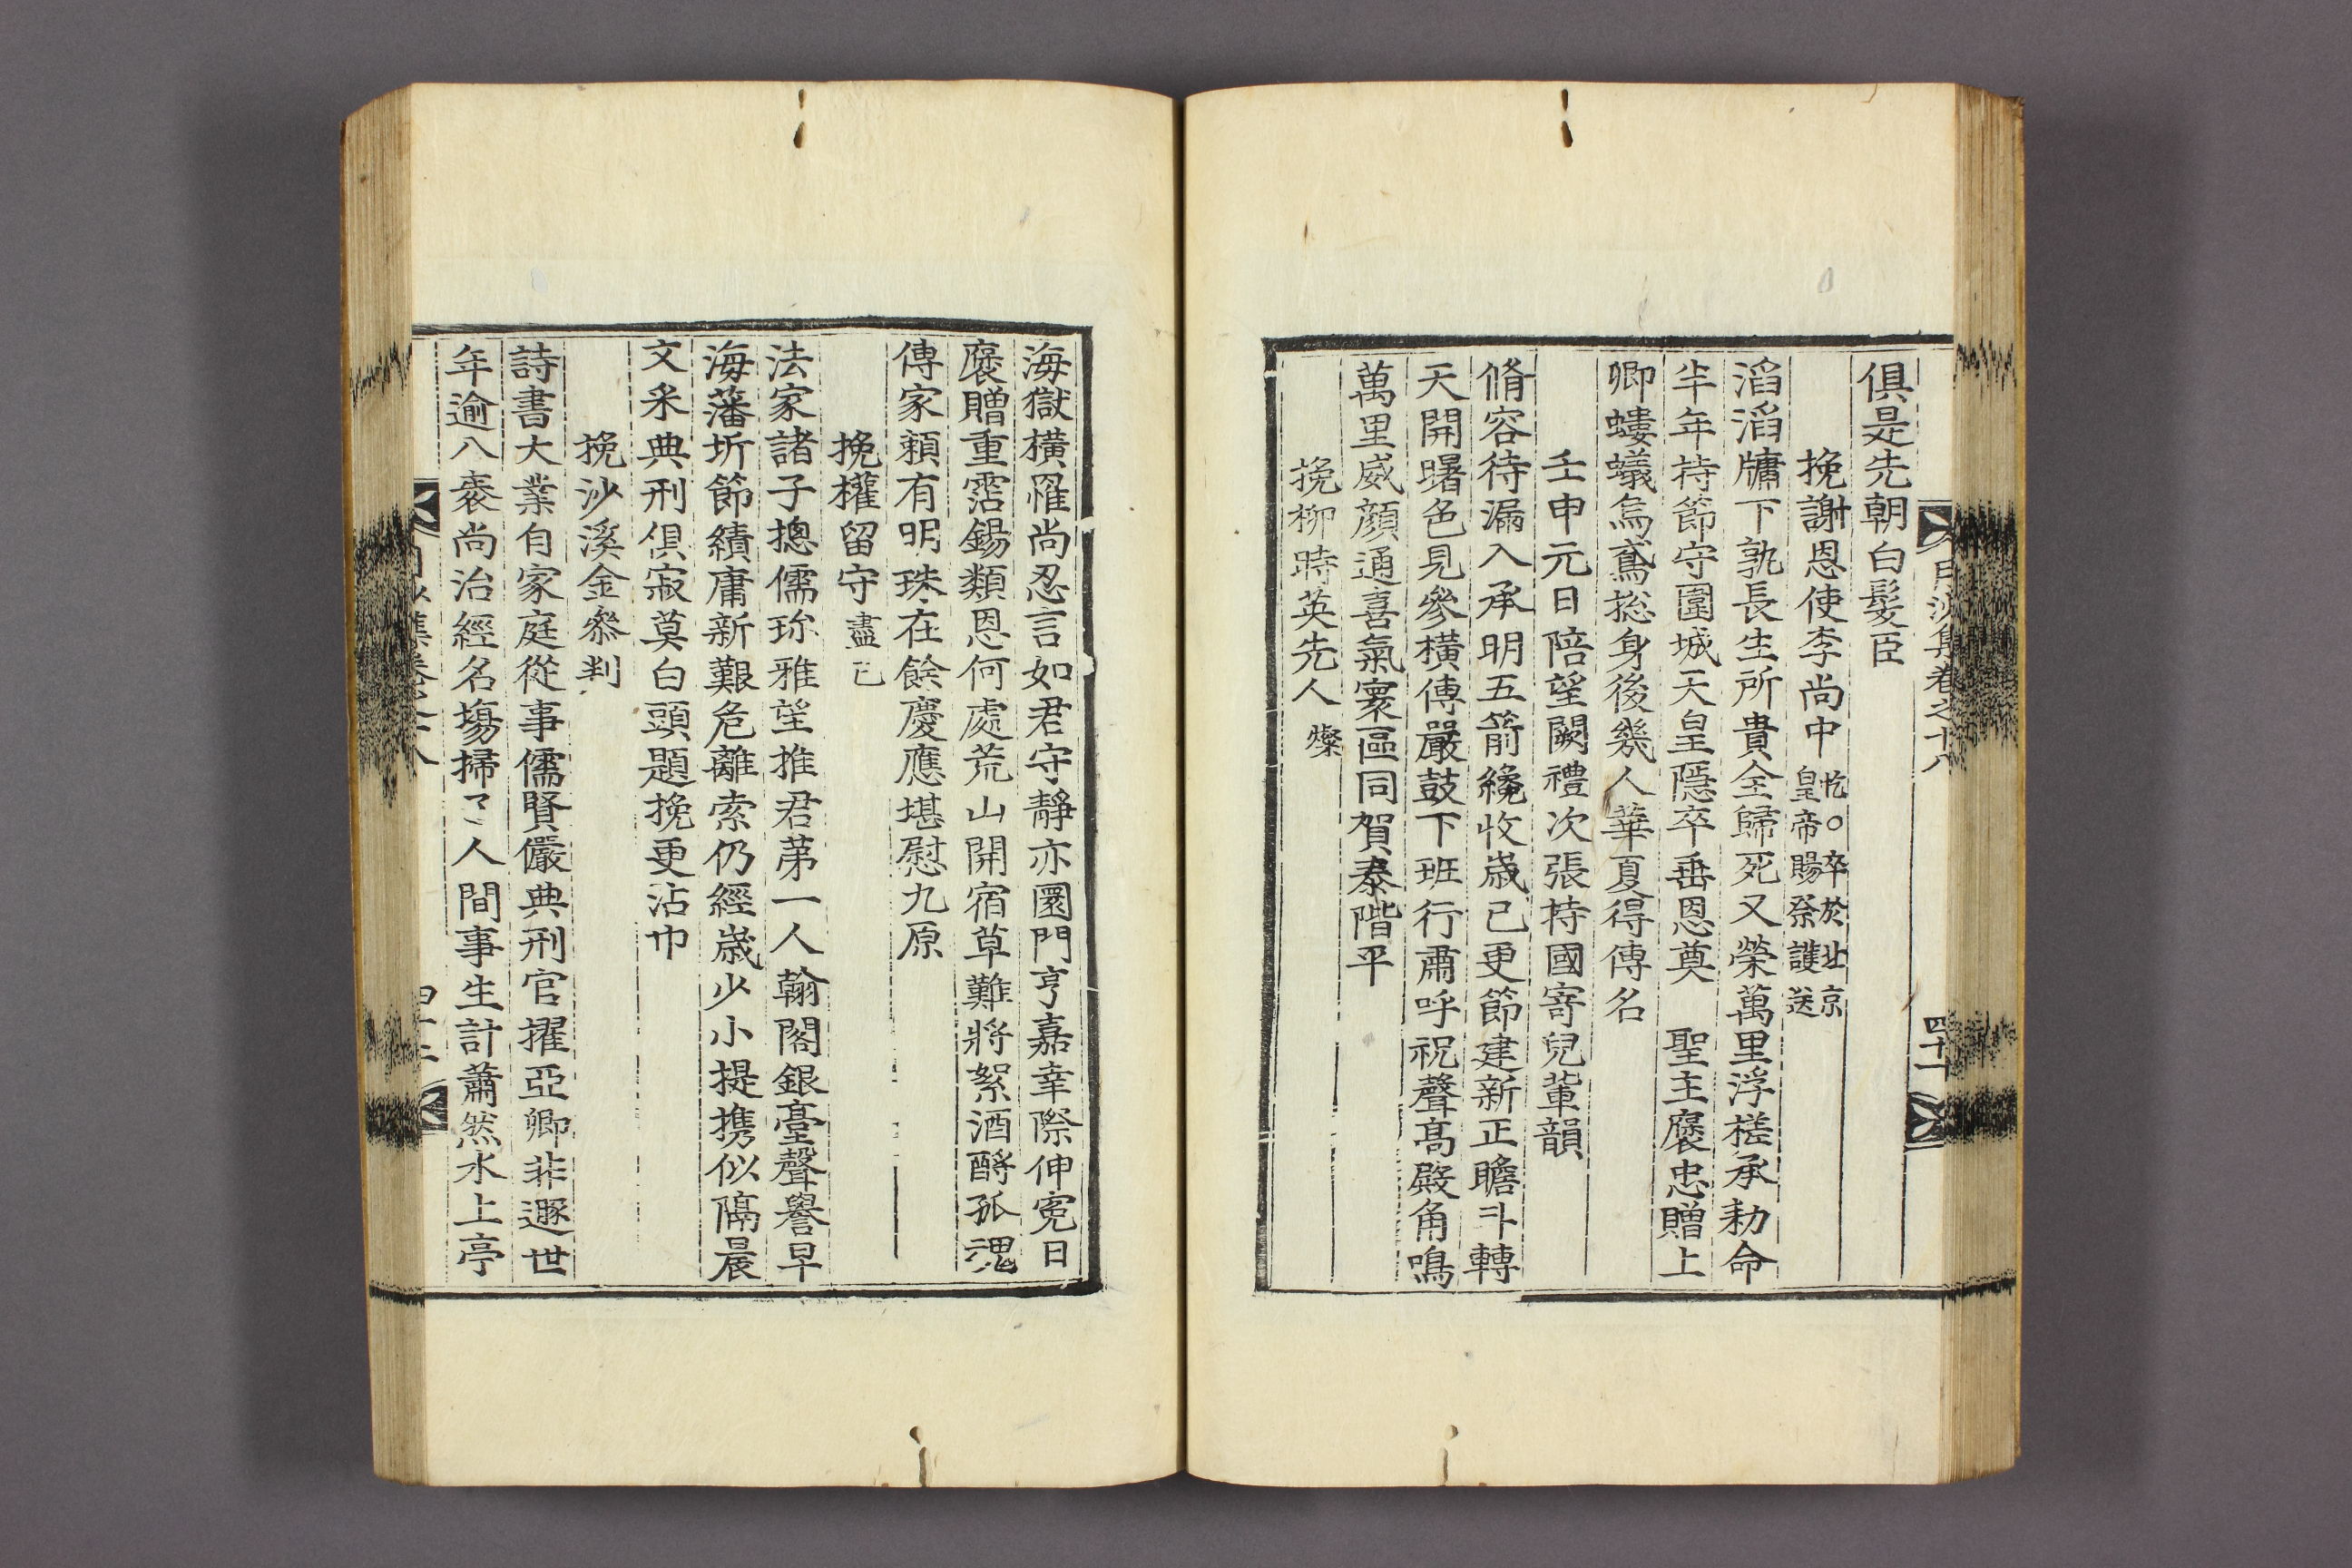 月沙集卷之十八
四十一
俱是先朝白髮臣
挽謝恩使李尚中忔○卒於北京
皇帝賜祭護送
滔滔牖下孰長生所貴全歸死又榮萬里浮槎承勑命
半年持節守圍城天皇隱卒垂恩奠 聖主褒忠贈上
卿螻蟻烏鳶揔身後幾人華夏得傳名
壬申元日陪望闕禮次張持國寄兒輩韻
脩容待漏入承明五箭纔收歲已更節建新正瞻斗轉
天開曙色見參橫傳嚴鼓下班行肅呼祝聲高殿角鳴
萬里威顔通喜氣寰區同賀泰階平
挽柳時英先人燦
海獄橫罹尚忍言如君守靜亦圜門亨嘉幸際伸冤日
褒贈重霑錫類恩何處荒山開宿草難將絮酒酹孤魂
傳家賴有明珠在餘慶應堪慰九原
挽權留守盡己
法家諸子摠儒珎雅望推君苐一人翰閣銀臺聲譽早
海藩圻節績庸新艱危離索仍經歲少小提携似隔晨
文采典刑俱寂莫白頭題挽更沾巾
挽沙溪金叅判
詩書大業自家庭從事儒賢儼典刑官擢亞卿非遯世
年逾八袠尚治經名塲掃了人間事生計蕭然水上亭